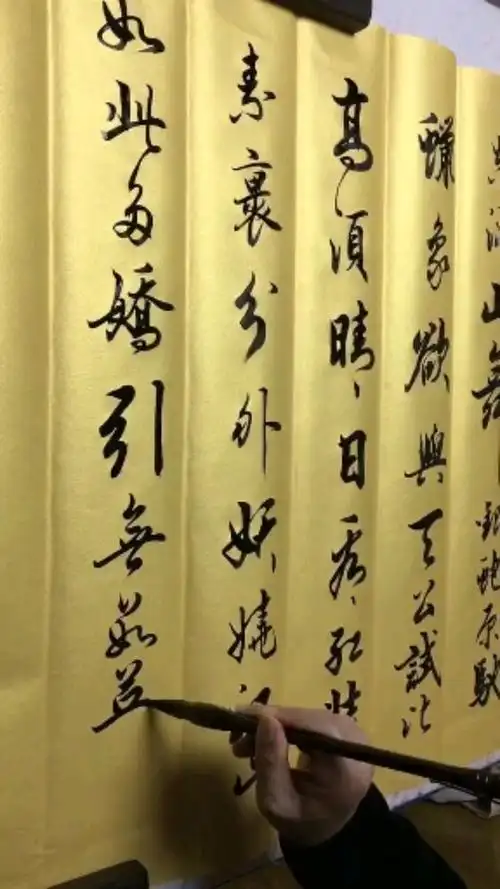 山舞銀蛇原馳
蠟象欲與天公試比
高須晴日看紅裝
素裹分外妖嬈江山
如此多嬌引無數